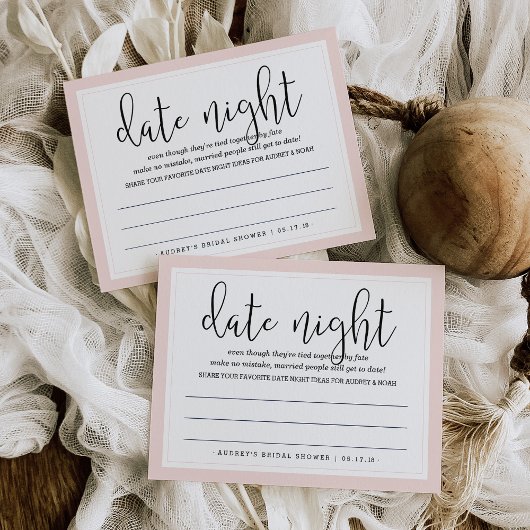 date night
even though they're tied together by fate
make no mistake, married people still get to date!
SHARE YOUR FAVORITE DATE NIGHT IDEAS FOR AUDREY & NOAH
· AUDREY'S BRIDAL SHOWER | 05.17.18 ·
date night
even though they're tied together by fate
make no mistake, married people still get to date!
SHARE YOUR FAVORITE DATE NIGHT IDEAS FOR AUDREY & NOAH
· AUDREY'S BRIDAL SHOWER | 05.17.18 ·